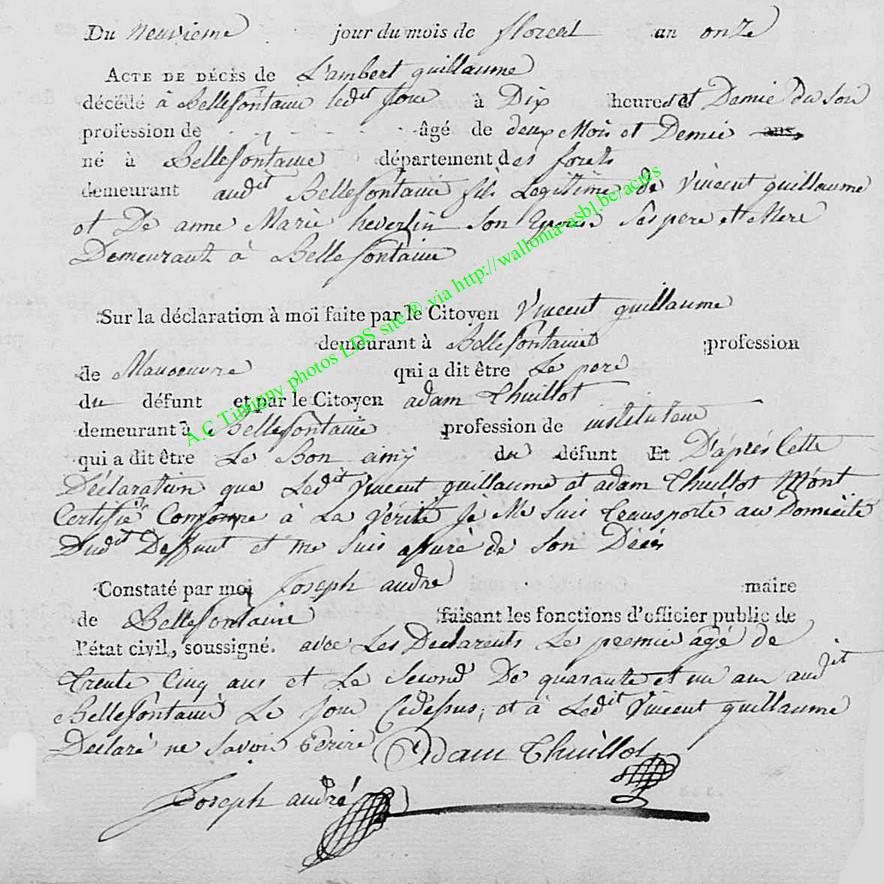 Du neuvieme jour du mois de floreal an onze
ACTE DE DÉCÈS de Lambert guillaume
décédé à Bellefontaine ledit Jour à Dix heures et Demie du Soir
profession de âgé de deux Mois et Demie ans,
né à Bellefontaine département des forets
demeurant audit Bellefontaine fils Legitime de Vincent guillaume
et De anne Marie heverlin Son Epouse Ses pere et Mere
Demeurant à Bellefontaine
Sur la déclaration à moi faite par le Citoyen Vincent guillaume
demeurant à Bellefontaine profession
de Manoeuvre qui a dit être Le pere
du défunt et par le Citoyen adam thuillot
demeurant à Bellefontaine profession de instituteur
qui a dit être Le Bon amÿ du défunt Et D'après Cette
Déclaration que Ledit Vincent guillaume et adam thuillot M'ont
Certifié Conforme à La Vérité Je Me Suis transporté au Domicile
Dudit Deffunt et me Suis assuré de Son Décès
Constaté par moi Joseph andré maire
de Bellefontaine faisant les fonctions d'officier public de
l'état civil, soussigné. avec Les Declarents Le premie âgé de
trente Cinq ans et Le Second De quarante et un an audit
Bellefontaine Le Jour Cidessus, et à Ledit Vincent guillaume
Declaré ne Savoir Ecrire Adam Thuillot
Joseph andré
A.C Timonny photos LDS site® via http://wallonia-asbl.be/actes